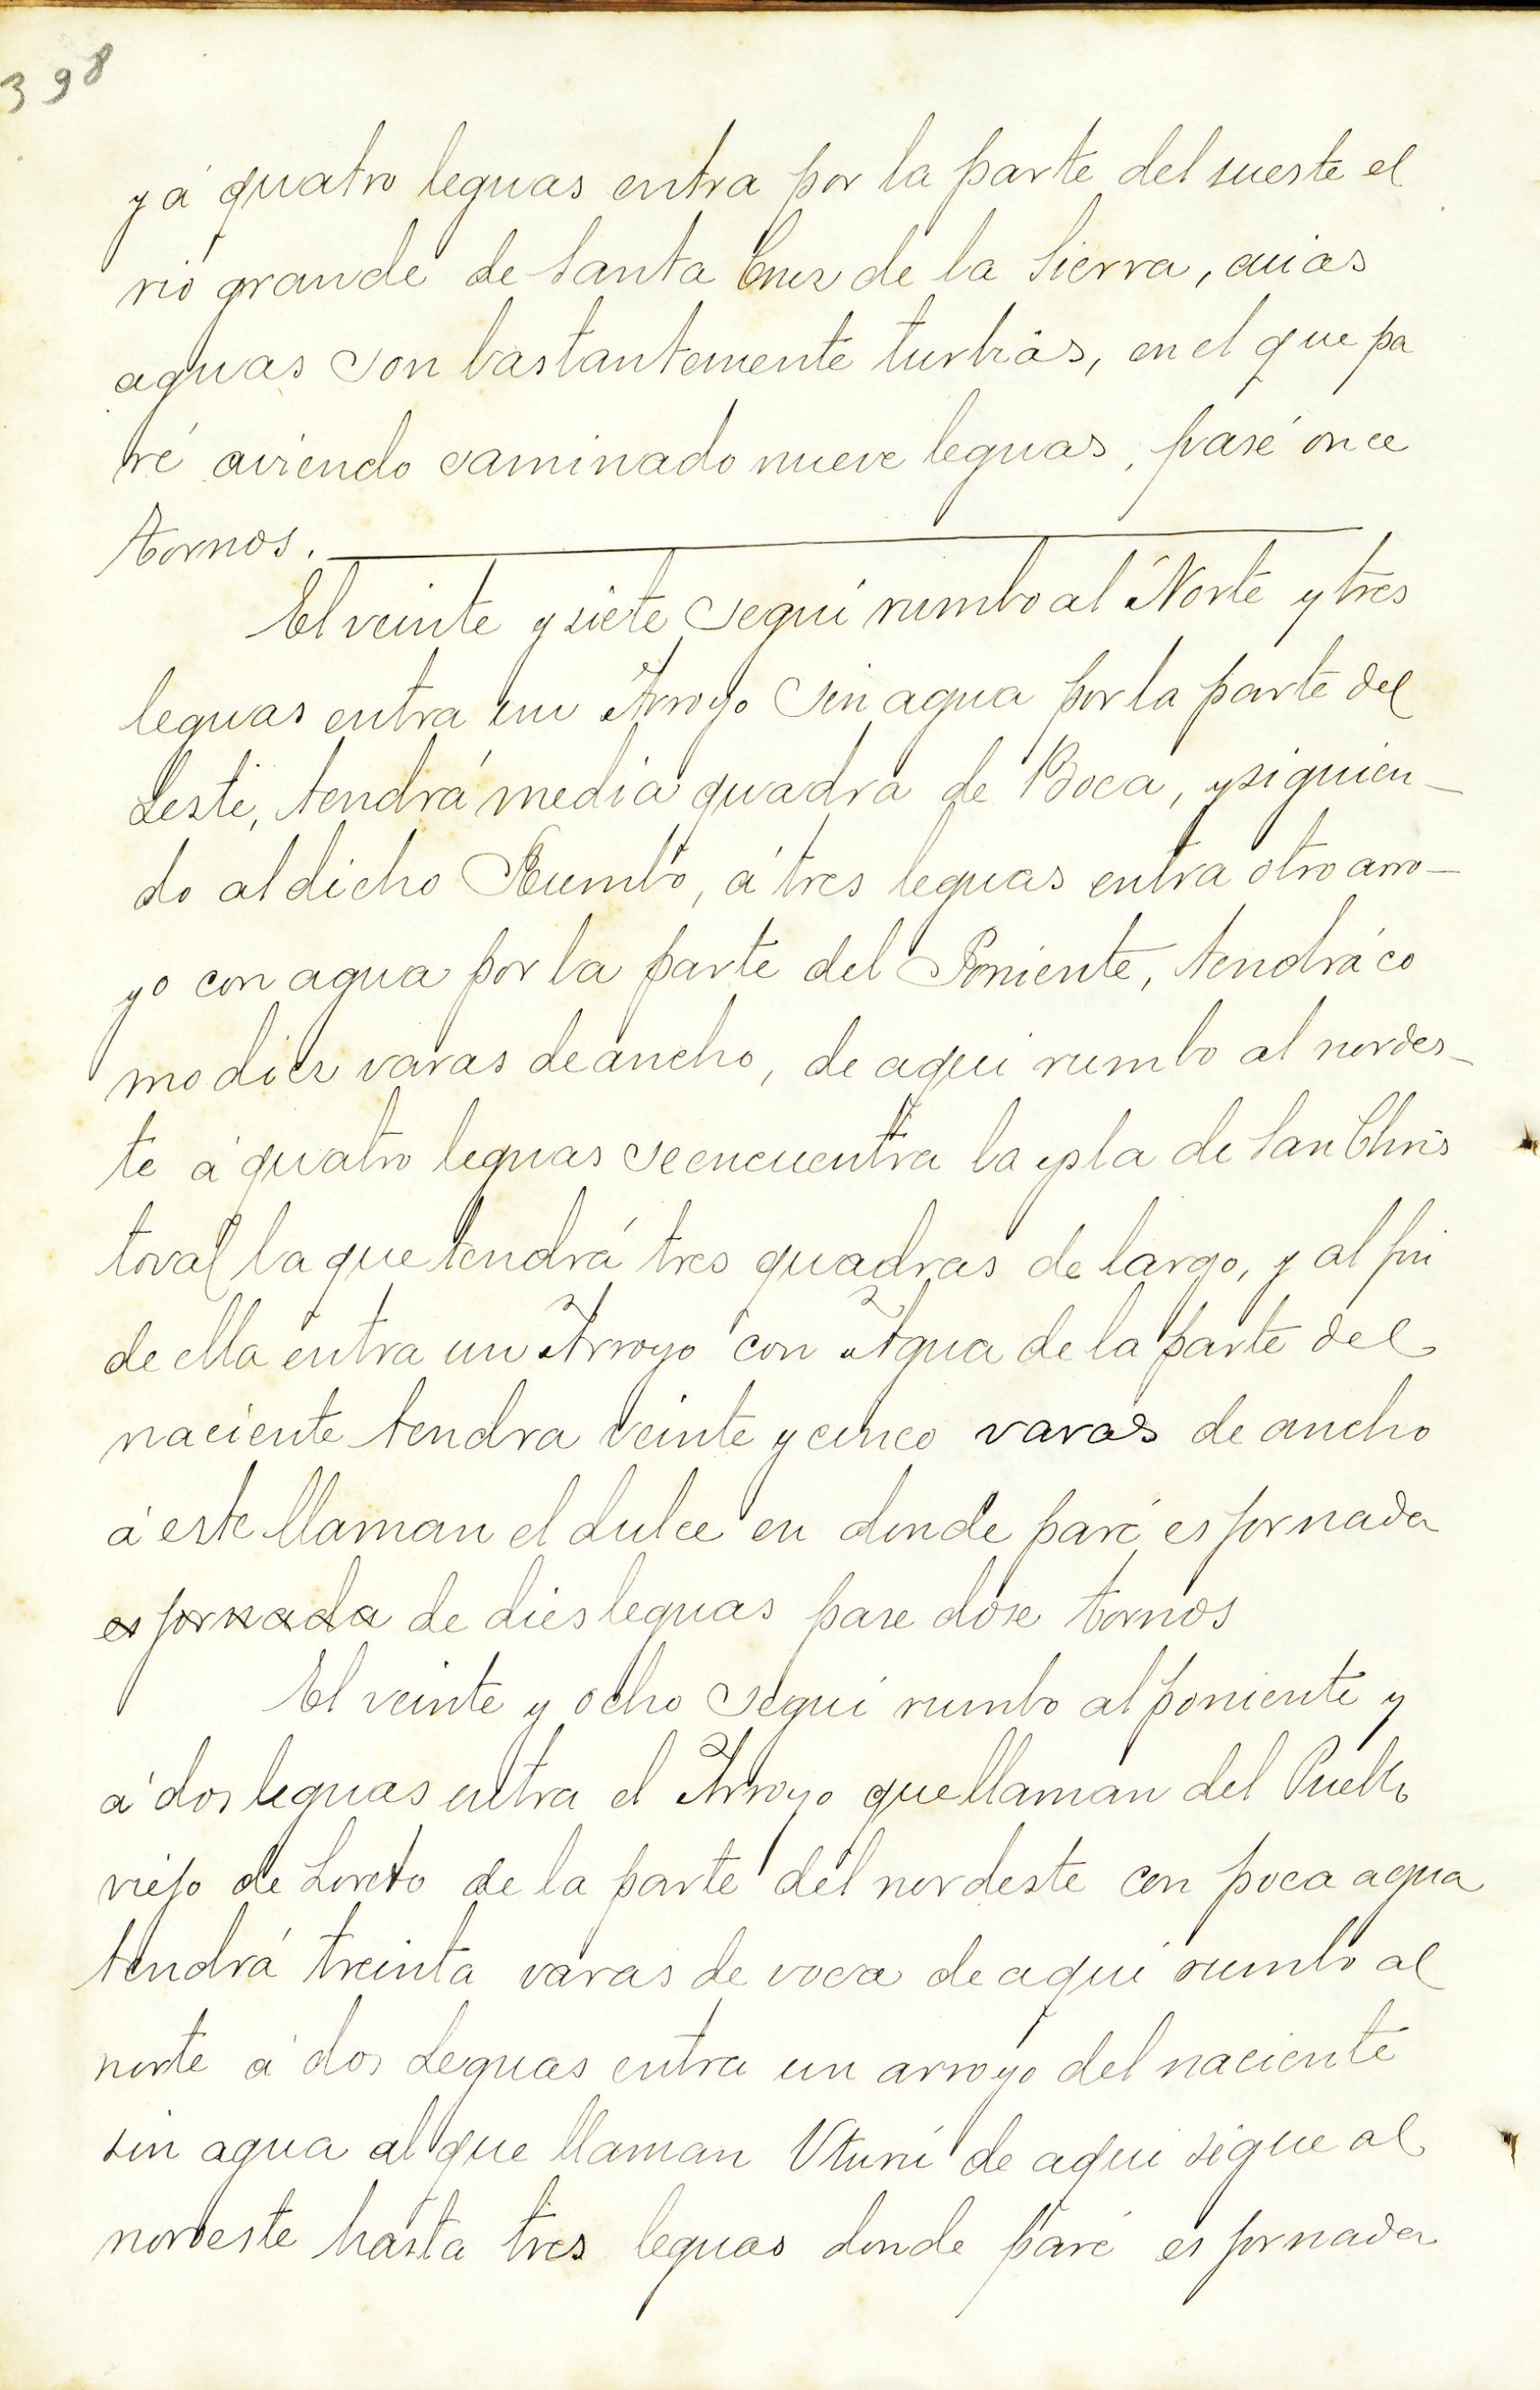 398
y á quatro leguas entra por la parte del sueste el
rio grande de Santa Cruz de la Sierra, cuias
aguas son bastantemente turbias, en el que pa
ré aviendo caminado nueve leguas, pasé once
tornos.
El veinte y siete segui rumbo al Norte y tres
leguas entra un Arroyo sin agua por la parte del
Leste, tendrá media quadra de Boca, y siguien-
do al dicho Rumbo, á tres leguas entra otro arro-
yo con agua por la parte del Poniente, tendrá co
mo diez varas de ancho, de aqui rumbo al nordes-
te á quatro leguas se encuentra la ysla de San Chris
toval la que tendrá tres quadras de largo, y al fin
de ella entra un Arroyo con Agua de la parte del
naciente tendra veinte y cinco varas de ancho
á este llaman el dulce en donde paré es jornada
es jornada de dies leguas pase dose tornos
El veinte y ocho segui rumbo al poniente y
á dos leguas entra el Arroyo que llaman del Pueblo
viejo de Loreto de la parte del nordeste con poca agua
tendrá treinta varas de voca de aqui rumbo al
norte á dos Leguas entra un arroyo del naciente
sin agua al que llaman Uturi de aqui sigue al
noroeste hasta tres leguas donde paré es jornada